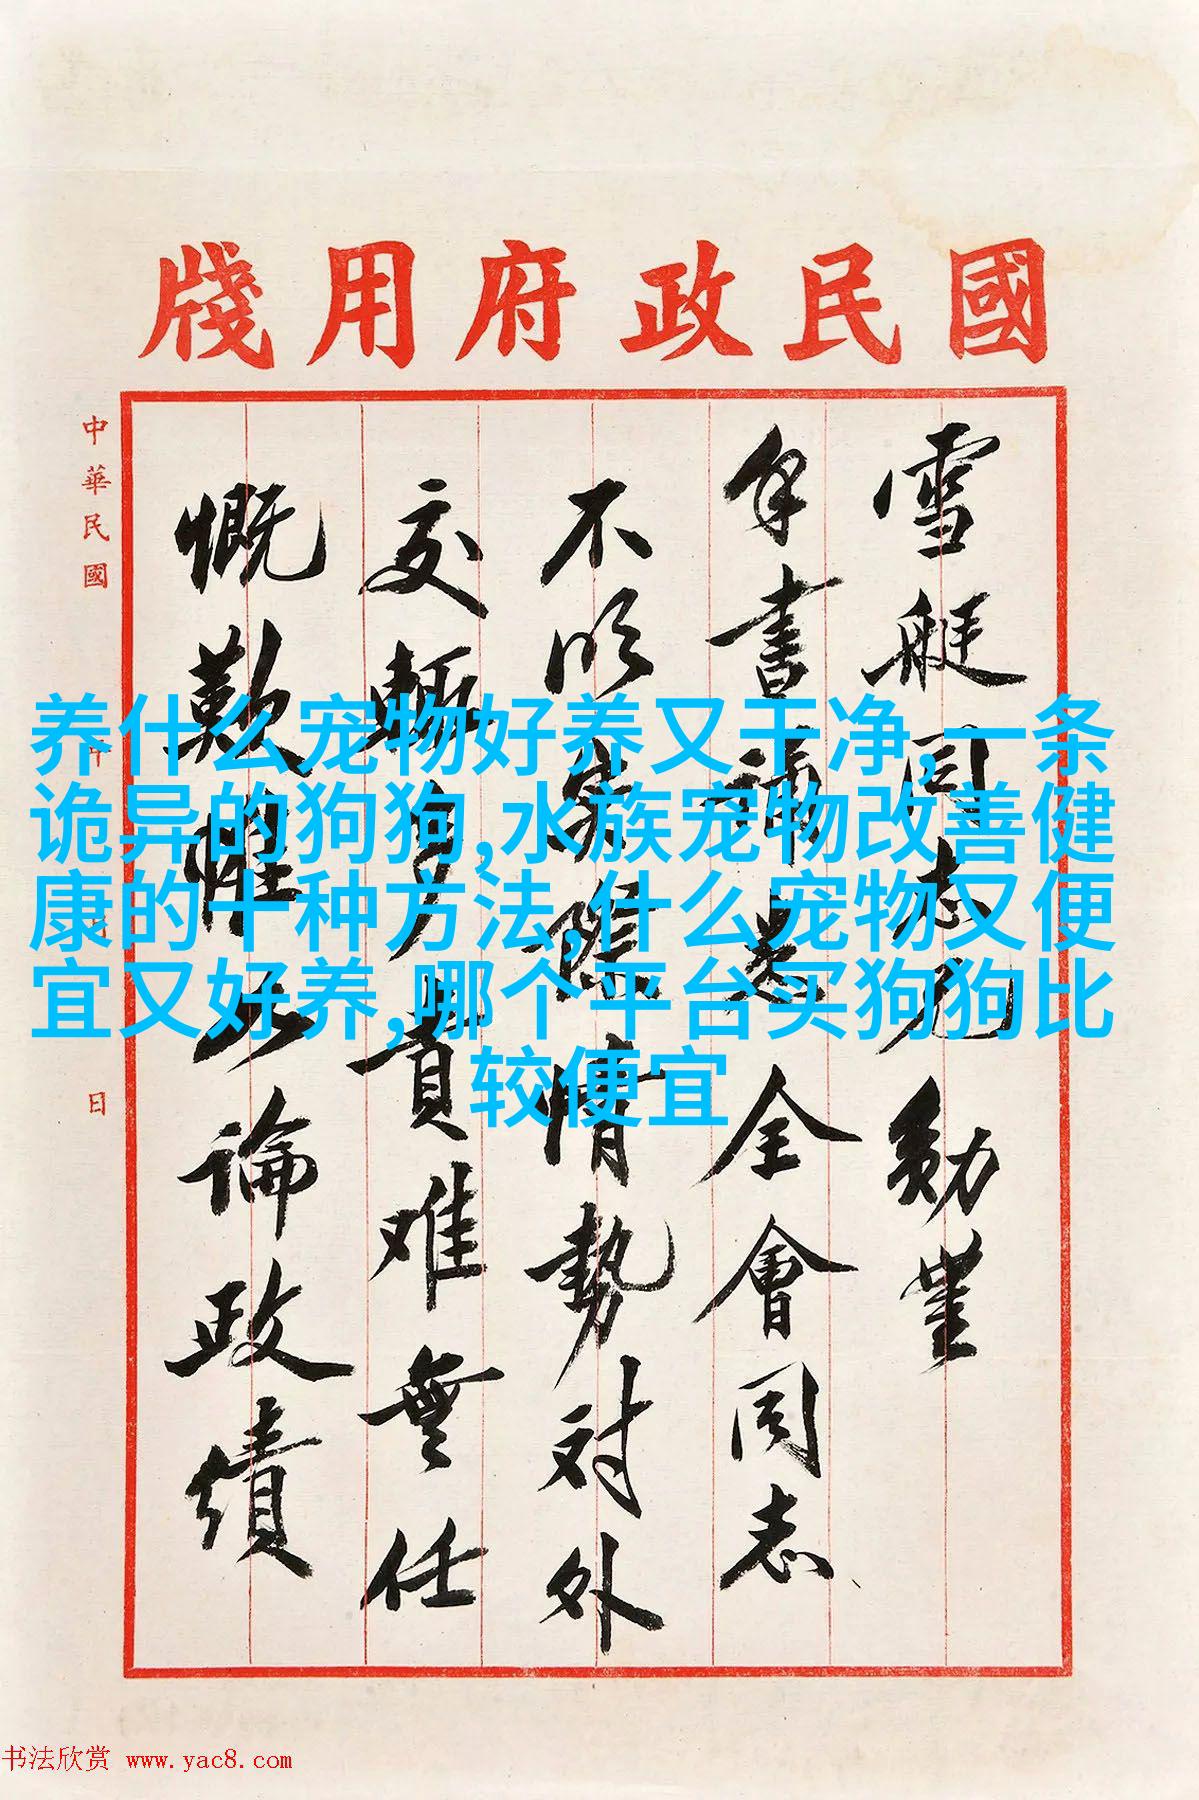 國民政府用牋
雪艇同志兄勛豐
手書誦悉全會同志
不明實際情勢对外
交輒多責难無任
慨歎惟以論政績
中華民國 年 月 日
养什么宠物好养又干净,一条
诡异的狗狗,水族宠物改善健
康的十种方法,什么宠物又便
宜又好养,哪个平台买狗狗比
较便宜
书法欣赏 www.yac8.com